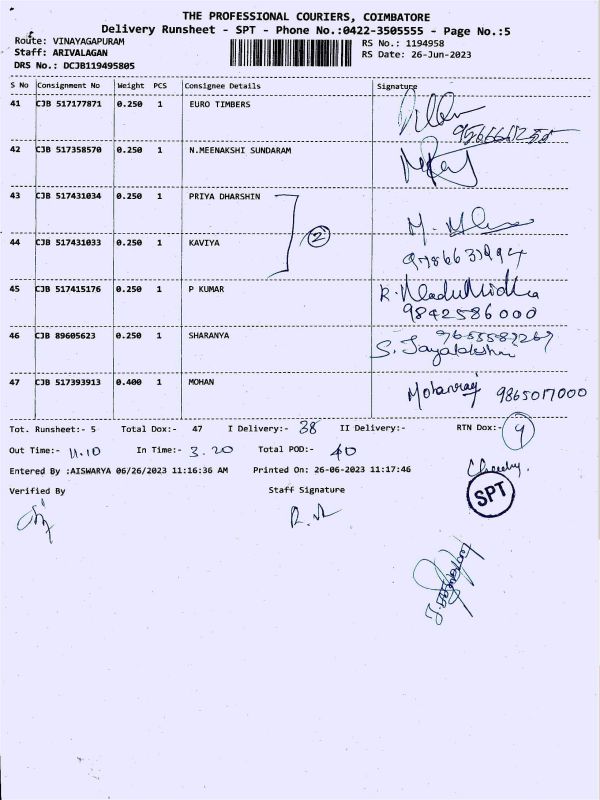 THE PROFESSIONAL COURIERS, COIMBATORE
Delivery Runsheet - SPT - Phone No.:0422-3505555 - Page No.:5
Route: VINAYAGAPURAM RS No.: 1194958
Staff: ARIVALAGAN RS Date: 26-Jun-2023
DRS No.: DCJB119495805
S No Consignment No Weight PCS Consignee Details Signature
41 CJB 517177871 0.250 1 EURO TIMBERS
42 CJB 517358570 0.250 1 N.MEENAKSHI SUNDARAM
43 CJB 517431034 0.250 1 PRIYA DHARSHIN
2
44 CJB 517431033 0.250 1 KAVIYA
45 CJB 517415176 0.250 1 P KUMAR
9842586000
46 CJB 89605623 0.250 1 SHARANYA
47 CJB 517393913 0.400 1 MOHAN Mohanraj 9865017000
Tot. Runsheet:- 5 Total Dox:- 47 I Delivery:- 38 II Delivery:- RTN Dox:- 9
Out Time:- 11.10 In Time:- 3.20 Total POD:- 40
Entered By :AISWARYA 06/26/2023 11:16:36 AM Printed On: 26-06-2023 11:17:46
Verified By Staff Signature
SPT